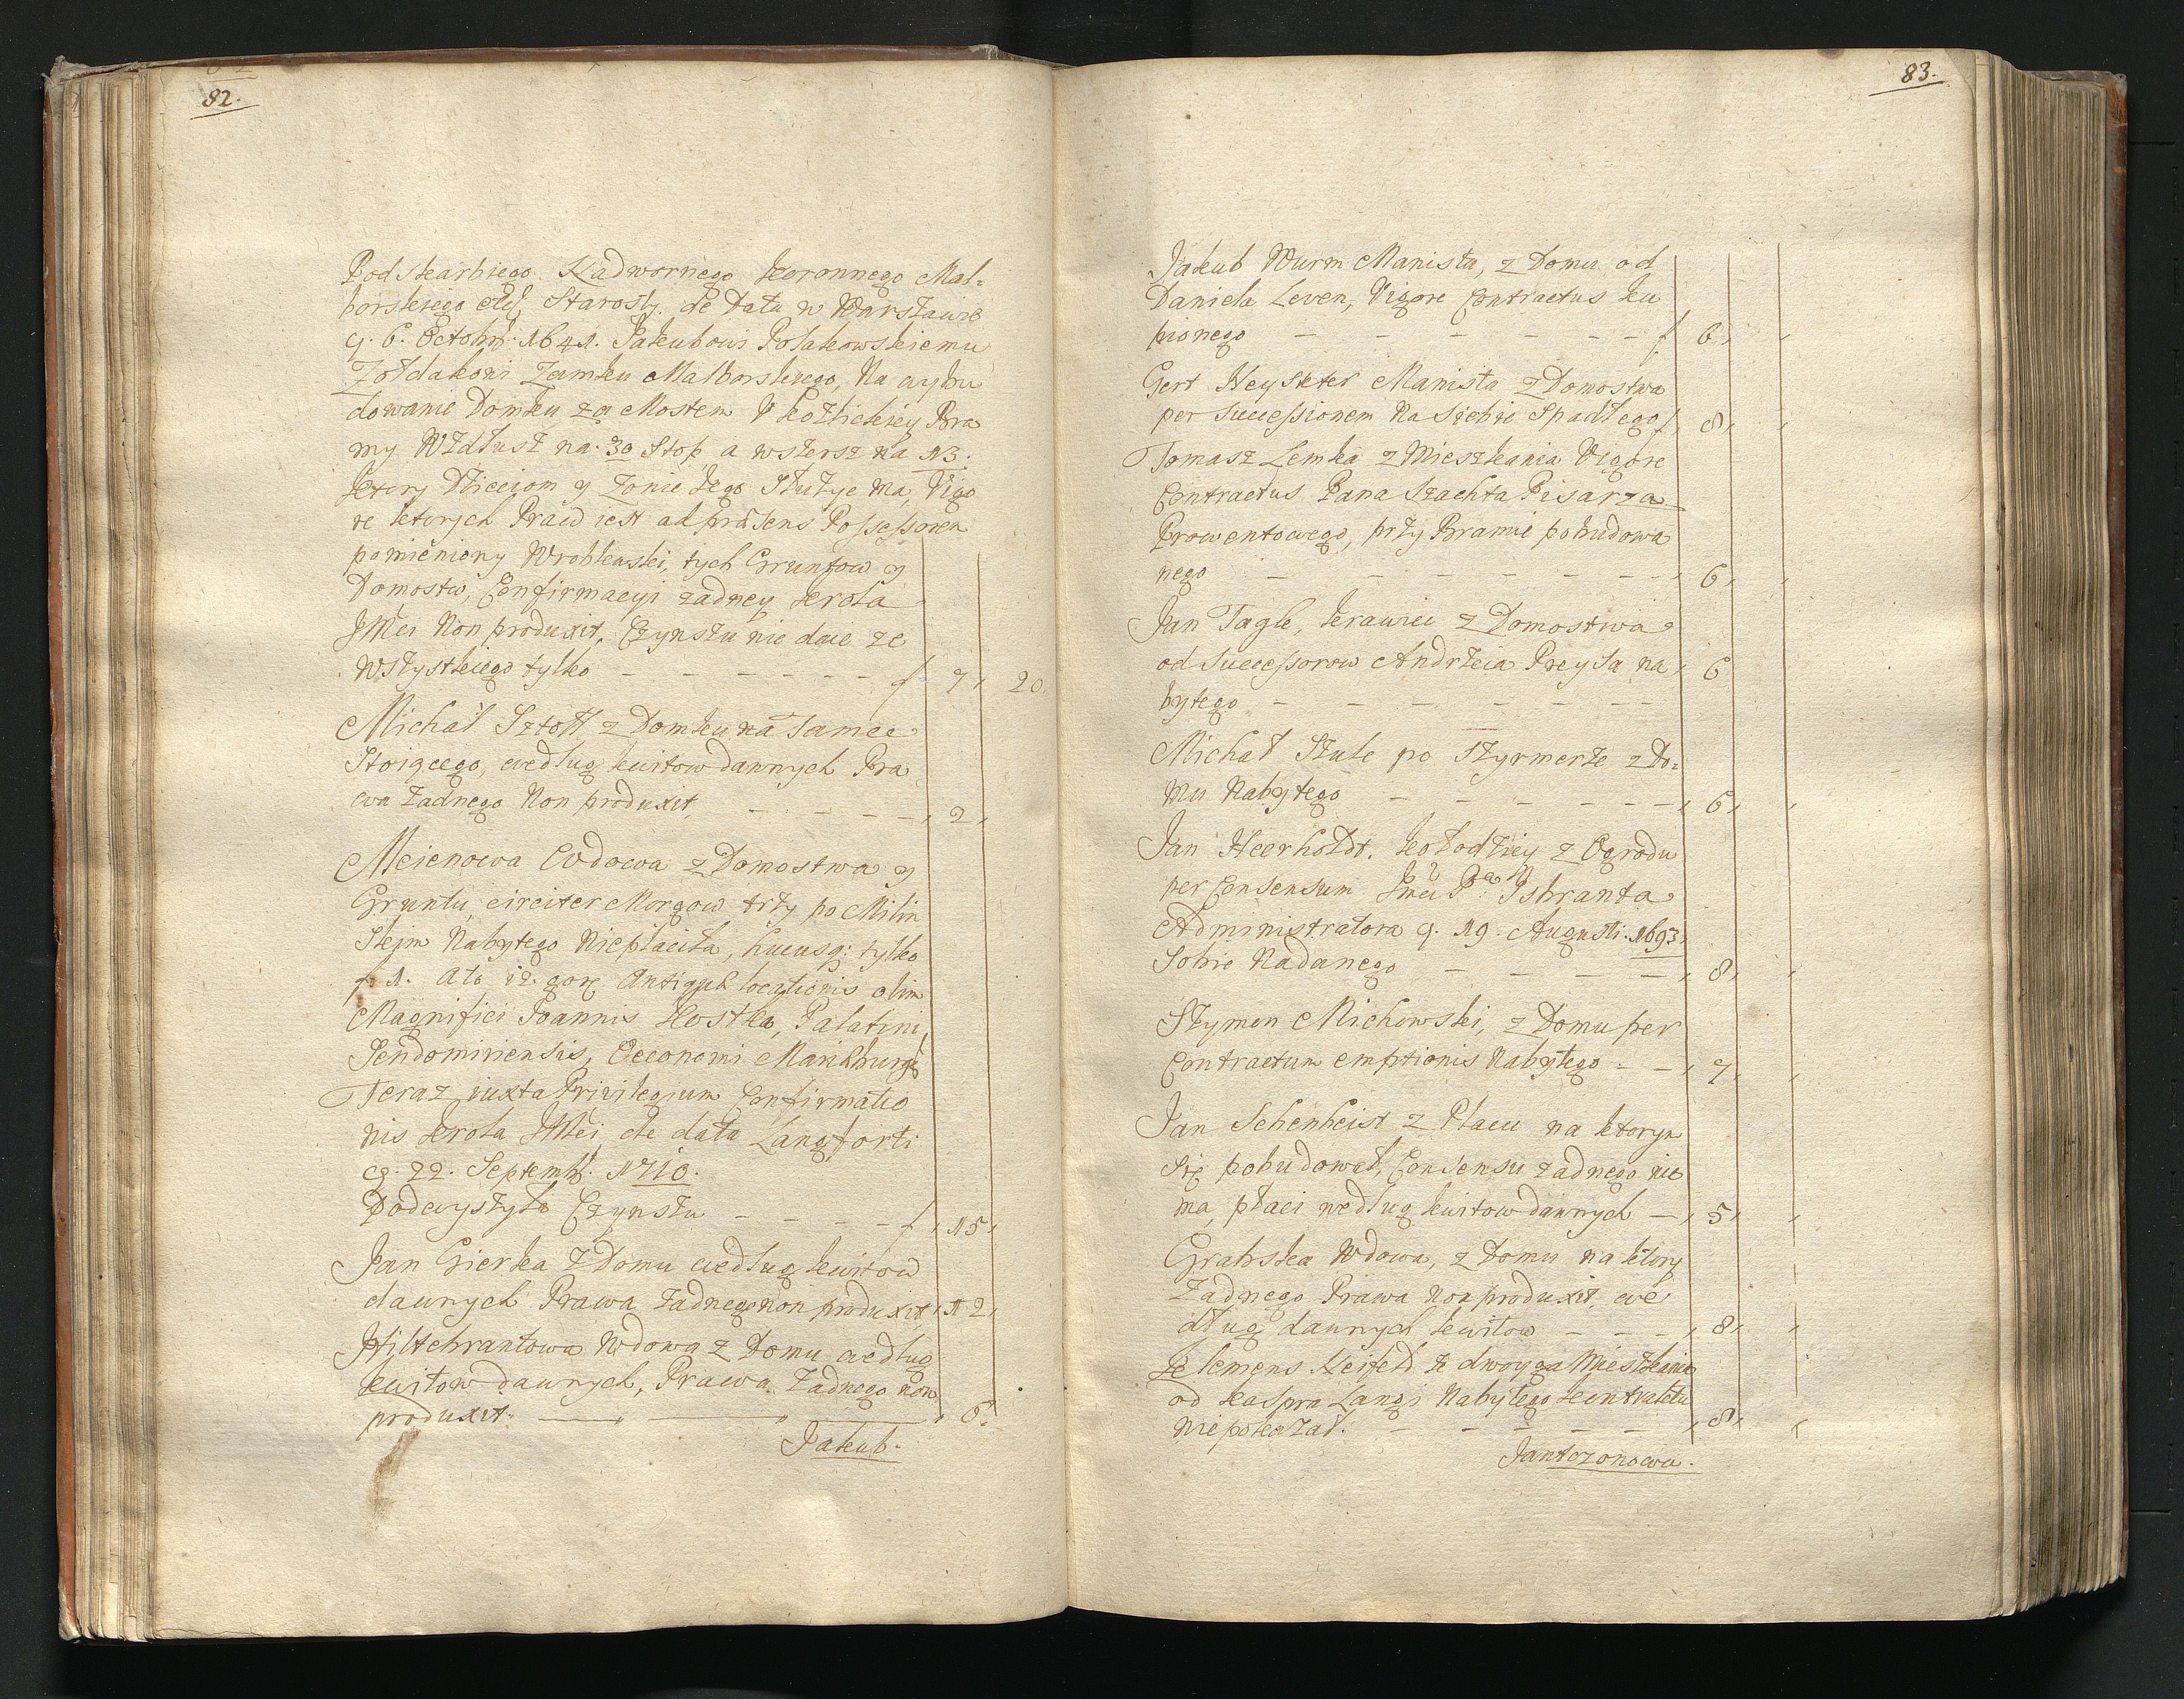 82.
Podskarbiego Nadwornego Koronnego Mal=
borskiego etc. Starosty. de Data w Warszawie
g. 6. Octobr. 1641. Jakubowi Polakowskiemu
Zołdakowi Zamku Malborskiego, Na wybu
dowanie Domku za Mostem V Kozlickiey Bra
my Wzdłusz na. 30 Stop a wstersz na 13.
ktory Dzieciom y Zonie Jego Służyc ma, Vigo
re ktorych Praw iest ad præsens Possessorem
pomieniony Wroblewski, tych Gruntow y
Domostw, Confirmacyi zadney Krola
JMci Non produxit, Czynszu nie daie ze
Wszystkiego tylko - - - - - - f 7, 20
Michał Sztoff z Domku na Samce
Stoiącego, według kwitow dannych Pra
wa Zadnego Non produxit, - - - - , 2,
Meienowa Wdowa z Domostwa y
Gruntu, circiter Morgow trzy po Milin
Skim Nabytego Niepłaciła, hucusq: tylko
f 1. Ato iz. gor. Antiquæ locationis olim
Magnifici Joannis Kostka, Palatini
Sendomiriensis, Oeconomi Marieburg:
Teraz iuxta Privilegium Confirmatio
nis Krola JMci de data Langforti
g. 22. Septembr. 1710.
Podwyszyło Czynszu - - - - f , 15,
Jan Gierka Z Domu według kwitow
dawnych Prawa Zadnego non produxit, 12,
Hiltebrantowa Wdowa z Domu według
kwitow dawnych, Prawa Zadnego non
produxit. - - - , 6.
Jakub.
83.
Jakub Wurm Manista, z Domu od
Daniela Leven, Vigore Contractus ku
pionego - - - - - - f 6,
Gert Heykter Manista z Domostwa
per Successionem Na Siebie Spadłego f, 8,
Tomasz Lemka z Mieszkania Vigore
Contractus Pana Szachta Pisarza
Prowentowego, przy Bramie pobudowa
nego - - - - - - , 6,
Jan Tagle, krawiec z Domostwa
od Successorow Andrzeia Preysa na, 6
bytego - - - - - -
Michał Szule po Szyrmerze z Do=
mu Nabytego - - - - - , 6,
Jan Heerholdt. kołodziey z Ogrodu
per Consensum Jmci Pa Isbranta
Administratora g. 19. Augusti. 1693.
Sobie Nadanego - - - - , 8,
Szymon Michowski, z Domu per
Contractum emptionis Nabytego - - , 7,
Jan Schenheist z Placu na ktorym
Się pobudował, Consensu zadnego nie
ma, płaci według kwitow dawnych - , 5,
Grabska Wdowa, z Domu na ktory
Zadnego Prawa Non produxit, we
dług dawnych kwitow - - - , 8,
Klemens Neifeld z dwoyga Mieszkania
od Kaspra Langi Nabytego kontraktu
Niepokazał. - - - - - , 8,
Jantczonowa.